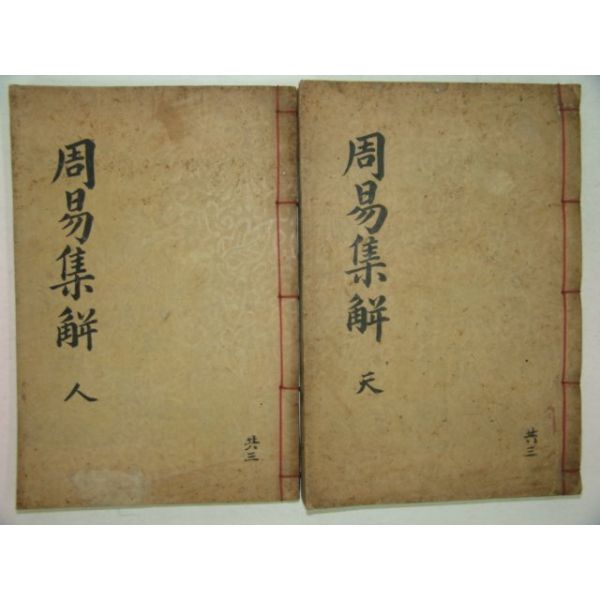 周易集解
人
共三
周易集解
天
共三